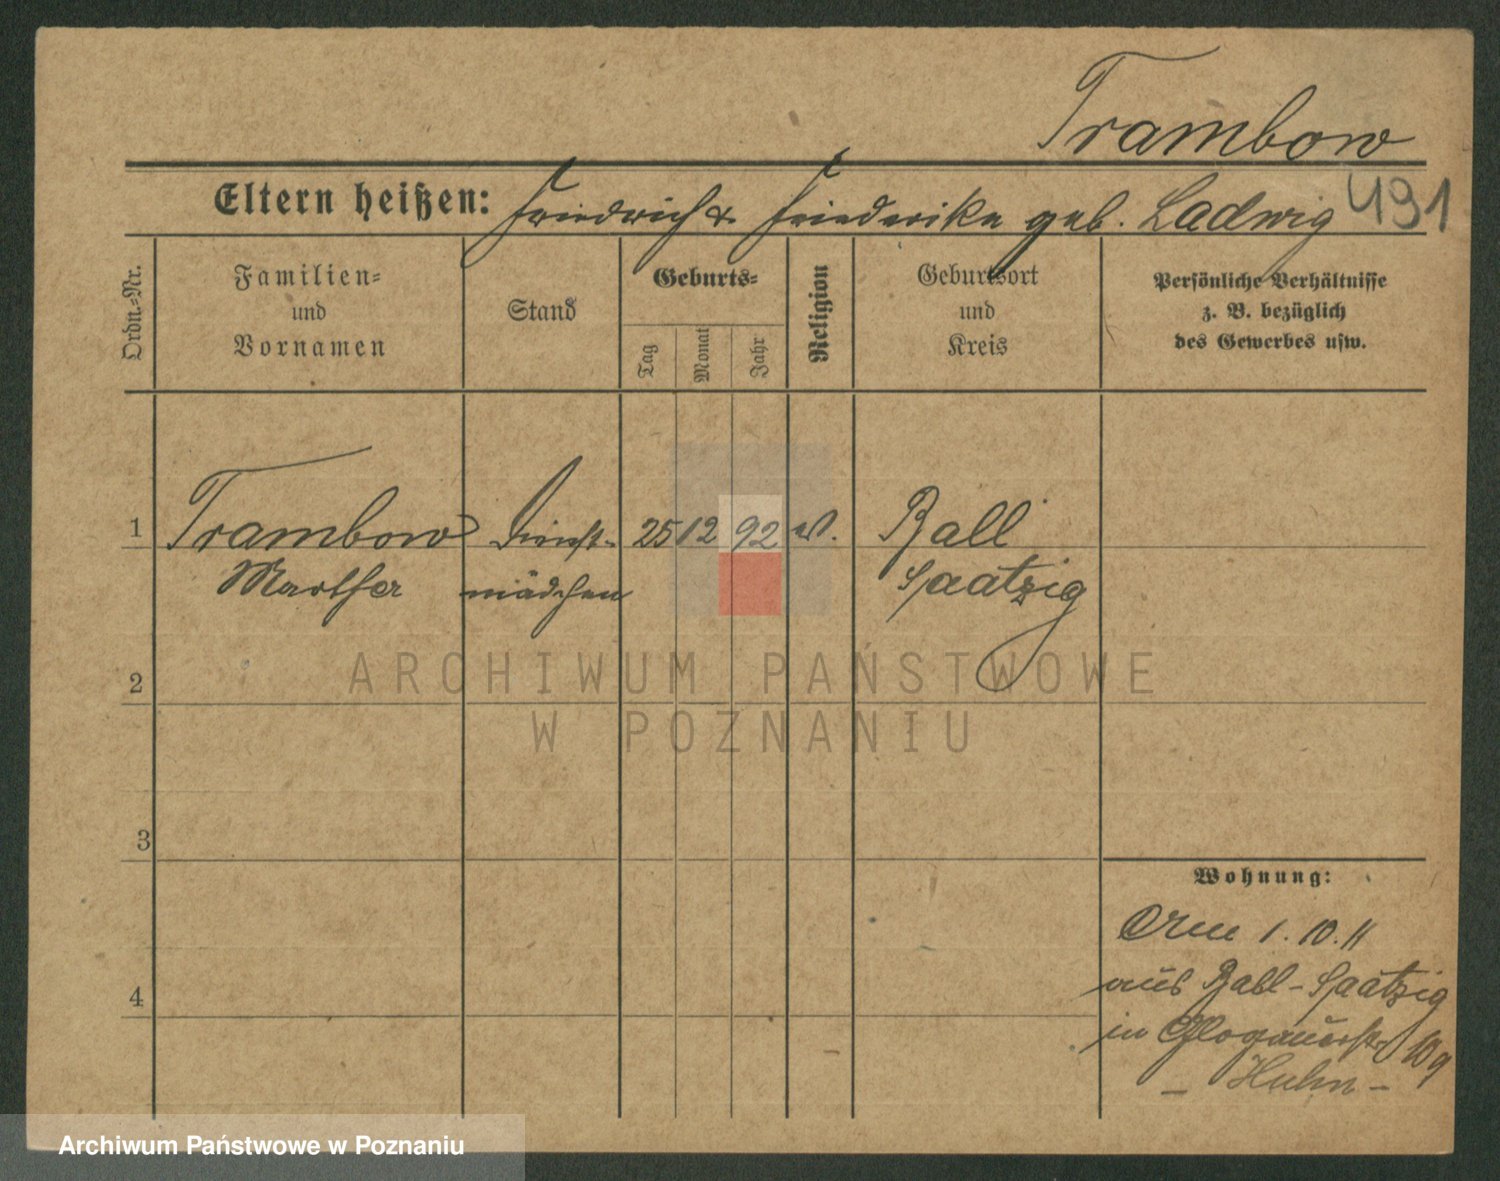 Trambow
Eltern heißen: Friedrich & Friederike geb. Ladwig 491
Ordn.-Nr.
Familien-
und
Vornamen
Stand
Geburts-
Tag
Monat
Jahr
Religion
Geburtsort
und
Kreis
Persönliche Verhältnisse
z. B. bezüglich
des Gewerbes usw.
1 Trambow Dienst- 25 12 92 ev. Ball
Marthar mädchen Saatzig
2
ARCHIWUM PAŃSTWOWE
W POZNANIU
3
Wohnung:
1. 10. 11
aus Ball - Saatzig
4
in Glogauerstr 109
- Huhn -
Archiwum Państwowe w Poznaniu